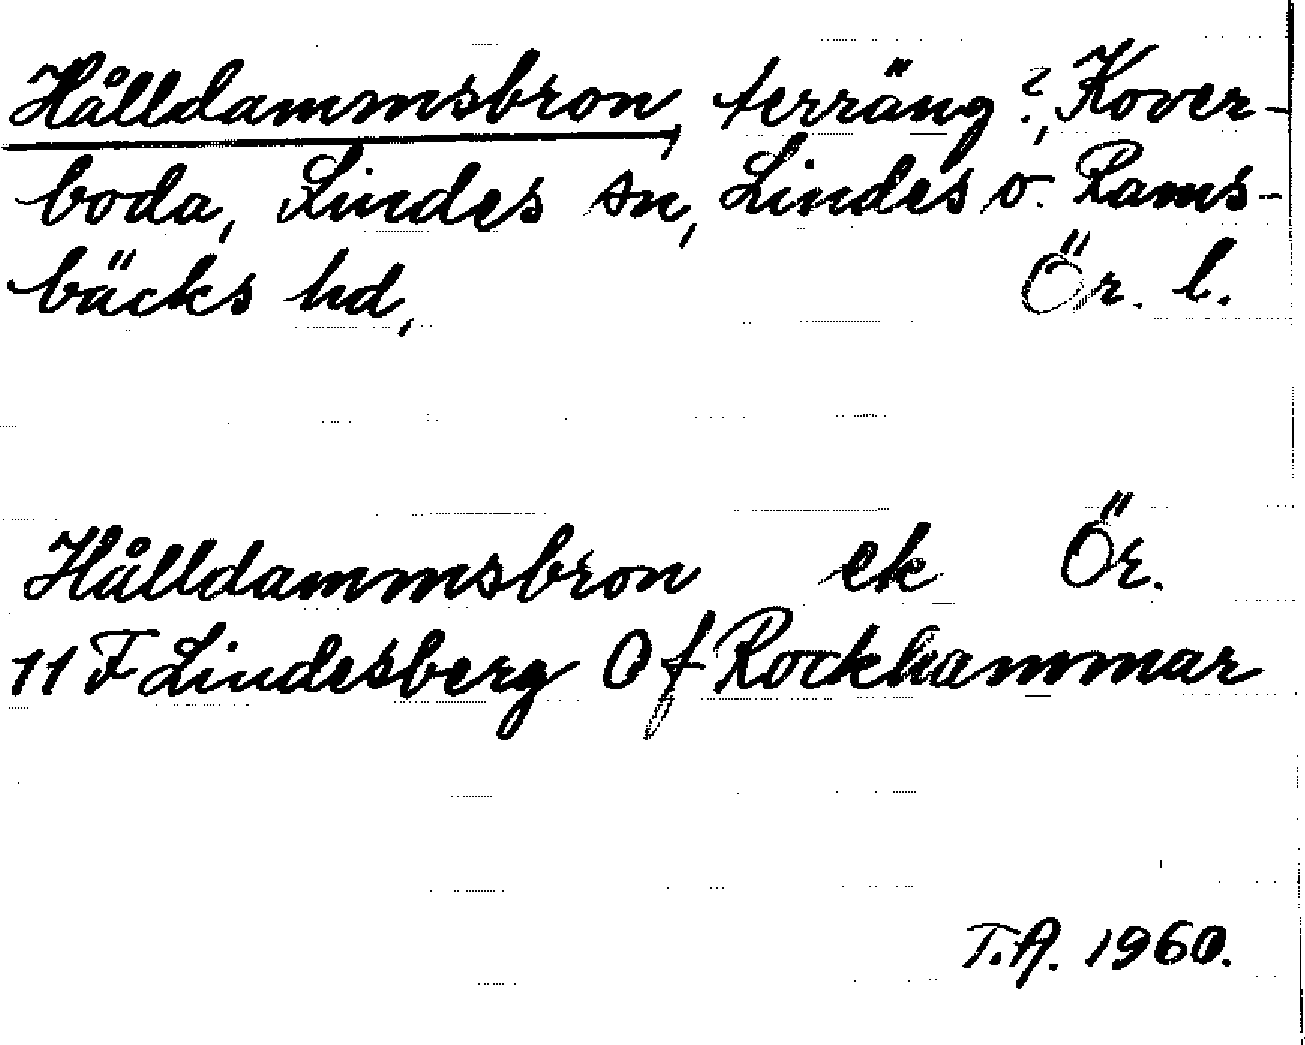 Hålldammsbron, terräng?, Kover-
boda, Lindes sn, Lindes o. Rams-
bäcks hd, Ör. l.
Hålldammsbron ek Ör.
11 F Lindesberg 0 f Rockhammar
T.A. 1960.